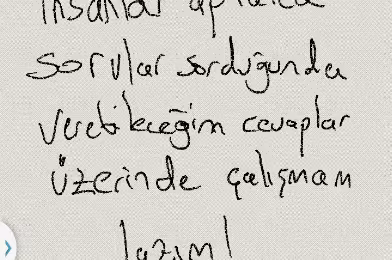 insanlar aptalca
sorular sorduğunda
verebileceğim cevaplar
üzerinde çalışmam
lazım!